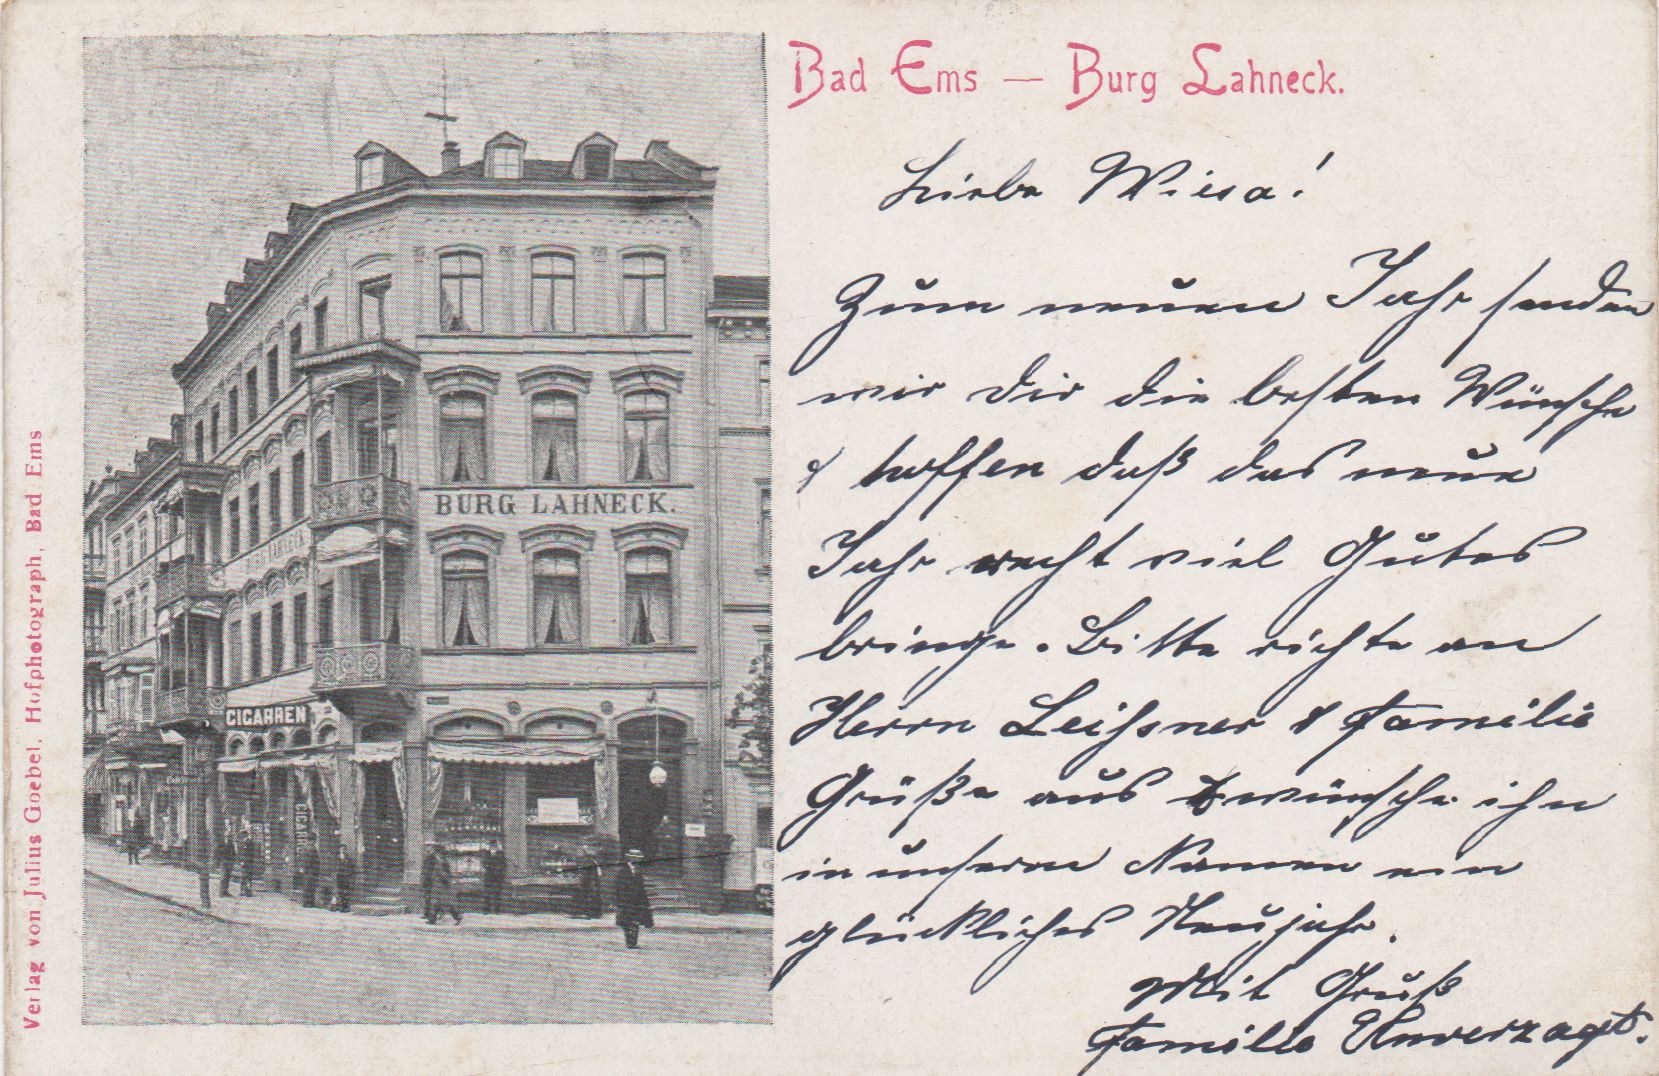 Bad Ems — Burg Lahneck.
Liebe Wiesa!
Zum neuen Jahr senden
wir dir die besten Wünsche
& hoffen daß das neue
Jahr recht viel Gutes
bringe. Bitte richte an
Herrn Leißner & Familie
Grüße aus & wünsche ihn
in unserm Namen ein
glückliches Neujahr.
Mit Gruß
Familie Unverzagt.
BURG LAHNECK.
BURG LAHNECK
CIGARREN
Verlag von Julius Goebel, Hofphotograph, Bad Ems